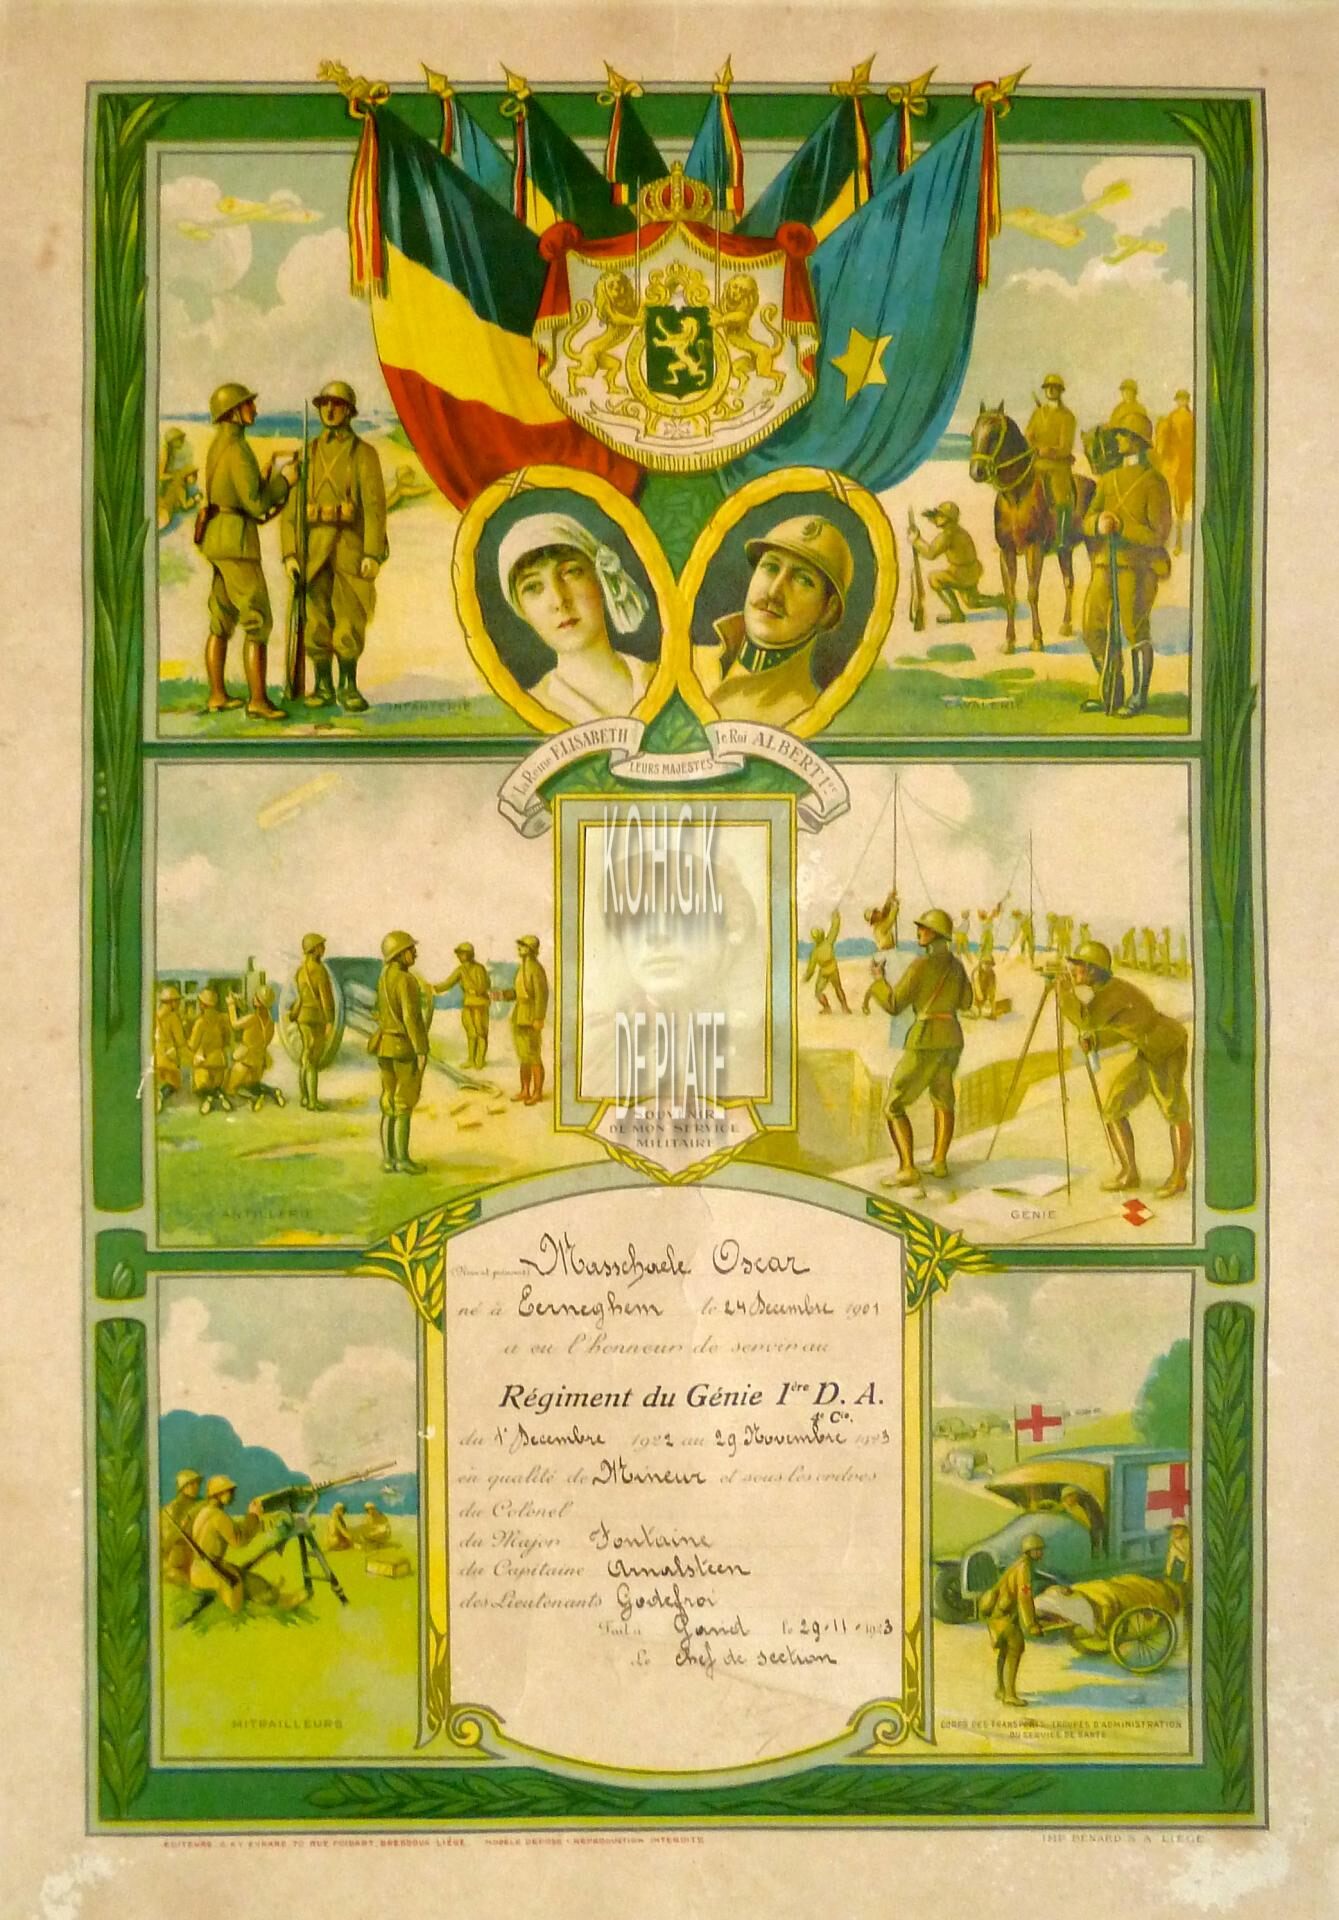 INFANTERIE
CAVALERIE
La Reine ELISABETH
LEURS MAJESTÉS
le Roi ALBERT Ier
K.O.H.G.K.
DE PLATE
SOUVENIR
DE MON SERVICE
MILITAIRE
ARTILLERIE
GÉNIE
(Nom et prénoms) Masschaele Oscar
né à Eerneghem le 24 Decembre 1901
a eu l'honneur de servir au
Régiment du Génie 1ère D. A.
4e Cie.
du 1r Decembre 1922 au 29 Novembre 1923
en qualité de Mineur et sous les ordres
du Colonel
du Major Fontaine
du Capitaine Arnalsteen
des Lieutenants Godefroi
Fait à Gand le 29-11-1923
Le chef de section
MITRAILLEURS
CORPS DES TRANSPORTS, TROUPES D'ADMINISTRATION
DU SERVICE DE SANTÉ
EDITEURS G. & Y EVRARD 70 RUE POIDART, BRESSOUX-LIÉGE MODÈLE DÉPOSÉ - REPRODUCTION INTERDITE
IMP. BÉNARD S. A. LIÉGE